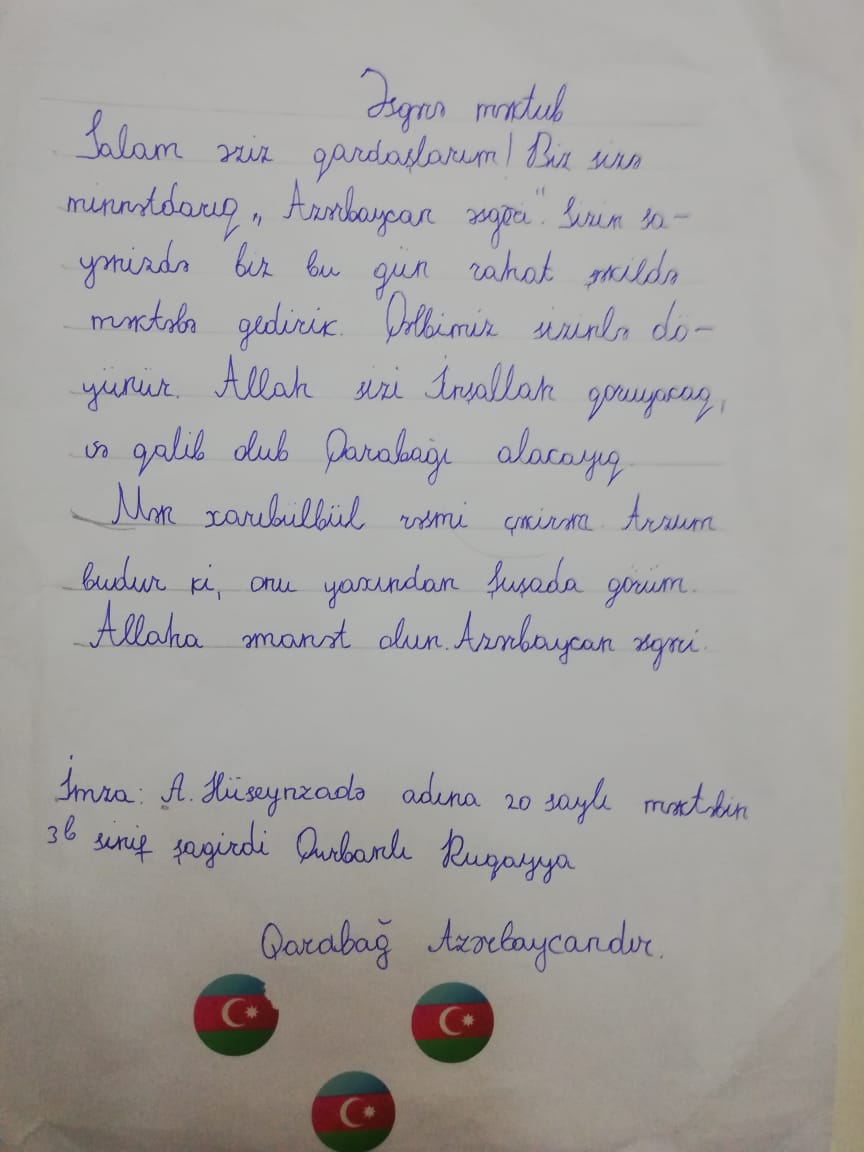 Əsgərə məktub
Salam əziz qardaşlarım! Biz sizə
minnətdarıq „Azərbaycan əsgəri". Sizin sa-
yənizdə biz bu gün rahat şəkildə
məktəbə gedirik. Qəlbimiz sizinlə dö-
yünür. Allah sizi İnşallah qoruyacaq,
və qalib olub Qarabağı alacayıq.
Mən xarıbülbül rəsmi çəkirəm. Arzum
budur ki, onu yaxından Şuşada görüm.
Allaha əmanət olun. Azərbaycan əsgəri.
İmza: A. Hüseynzadə adına 20 saylı məktəbin
3b sinif şagirdi Qurbanlı Ruqəyya
Qarabağ Azərbaycandır.